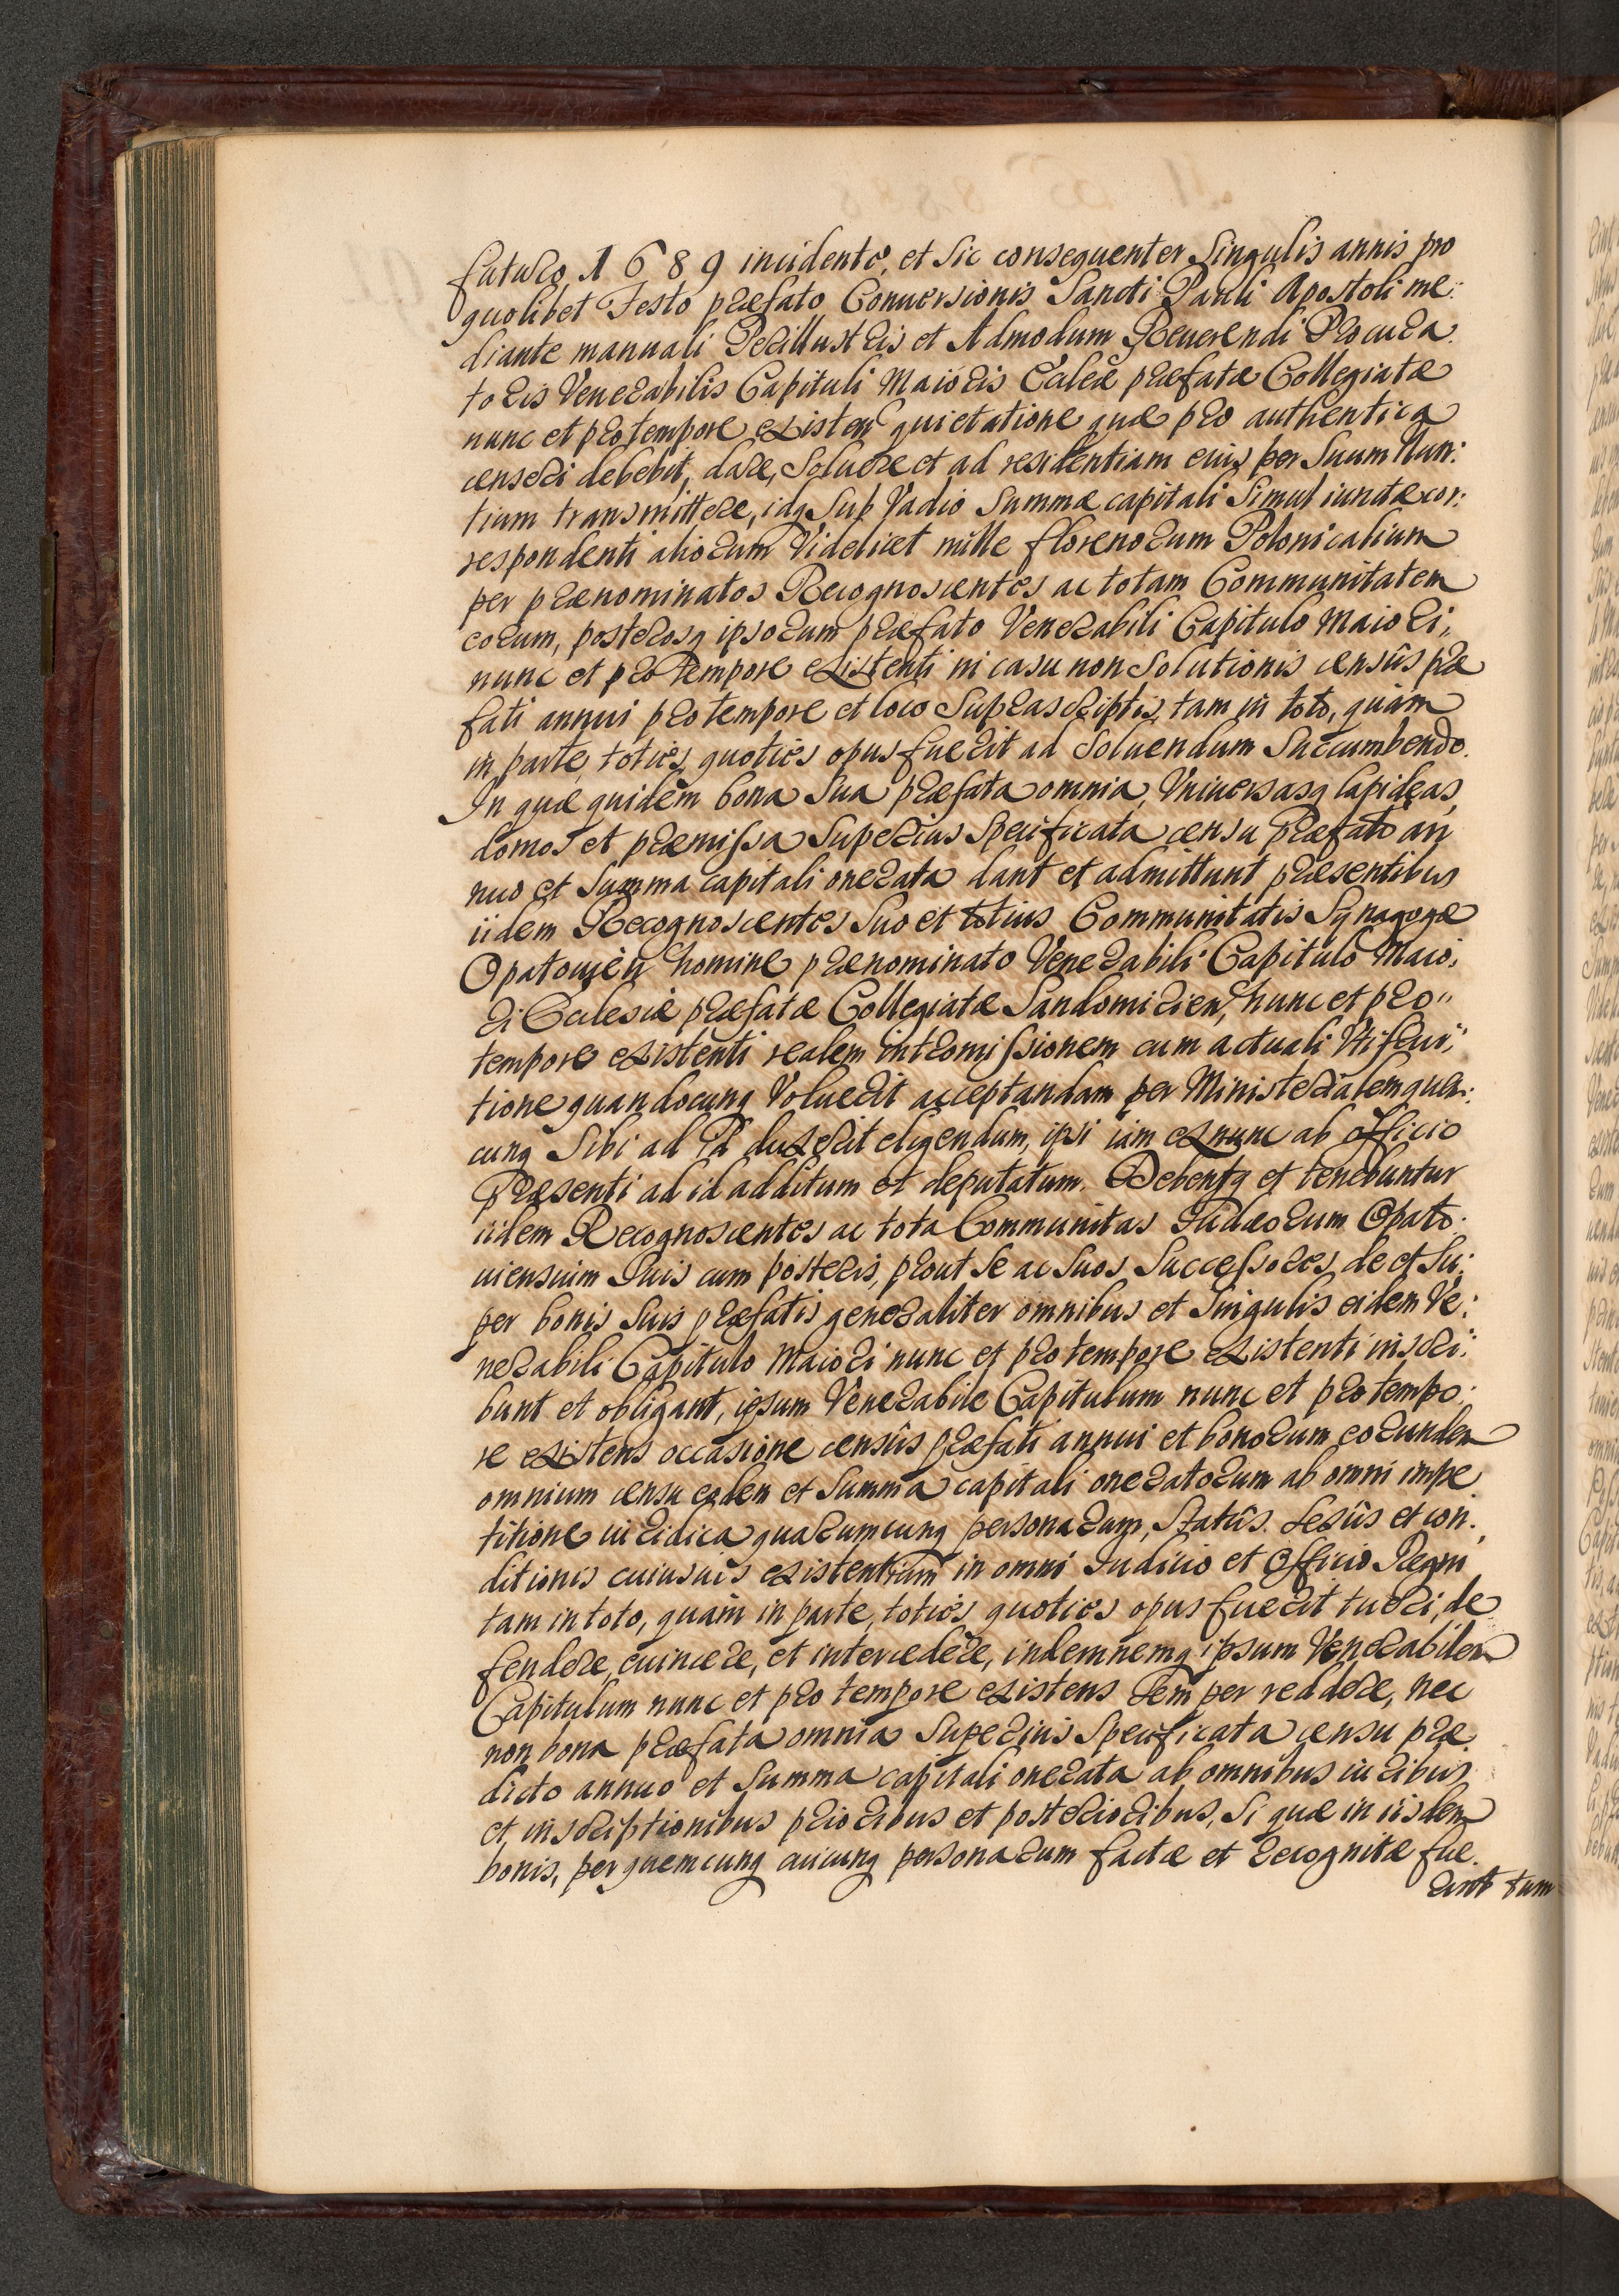 futuro 1689 incidente, et sic consequenter singulis annis pro
quolibet Festo præfato Conuersionis Sancti Pauli Apostoli me:
diante manuali Perillustris et Admodum Reuerendi Procura.
toris Venerabilis Capituli Maioris Eccleæ præfatæ Collegiatæ
nunc et pro tempore existen quietatione quæ pro authentica
censeri debebit, dare, soluere et ad residentiam eius per suum Nun:
tium transmittere, idq sub Vadio summæ capitali simul iunctæ cor:
respondenti aliorum Videlicet mille florenorum Polonicalium
per prænominatos Recognoscentes ac totam Communitatem
eorum, posterosq ipsorum præfato Venerabili Capitulo Maiori,,
nunc et pro tempore existenti in casu non solutionis censûs præ
fati annui pro tempore et loco suprascriptis, tam in toto, quàm
in parte, toties, quoties opus fuerit ad soluendum succumbendo.
In quæ quidem bona sua præfata omnia, Vniuersasq lapideas,
domos et præmissa superius specificata censu præfato an
nuo et summa capitali onerata dant et admittunt præsentibus
iidem Recognoscentes suo et totius Communitatis Synagogæ
Opatouien nomine prænominato Venerabili Capitulo Maio,
ri Ecclesiæ præfatæ Collegiatæ Sandomirien, nunc et pro,,
tempore existenti realem intromissionem cum actuali Vtifrui,,
tione quandocunq Voluerit acceptandam per Ministerialem quem:
cunq sibi ad id duxerit eligendum, ipsi iam ex nunc ab officio
præsenti ad id additum et deputatum. Debentq et tenebuntur
iidem Recognoscentes ac tota Communitas Iudæorum Opato.
uiensium suis cum posteris, prout se ac suos successores de et su:
per bonis suis præfatis generaliter omnibus et singulis eidem Ve:
nerabili Capitulo Maiori nunc et pro tempore existenti inscri:
bunt et obligant, ipsum Venerabile Capitulum nunc et pro tempo:
re existens occasione censûs præfati annui et bonorum eorundem
omnium censu eodem et summa capitali oneratorum ab omni impe.
titione iuridica quarumcunq personarum, statûs. sexûs et con.
ditionis cuiusuis existentium in omni Iudicio et Officio Regni
tam in toto, quàm in parte, toties quoties opus fuerit tueri, de
fendere, euincere, et intercedere, indemnemq ipsum Venerabilem
Capitulum nunc et pro tempore existens semper reddere, nec
non bona præfata omnia superius specificata censu præ.
dicto annuo et summa capitali onerata ab omnibus iuribus
et inscriptionibus prioribus et posterioribus, si quæ in iisdem
bonis, per quemcunq cuicunq personarum factæ et recognitæ fue.
rint tum